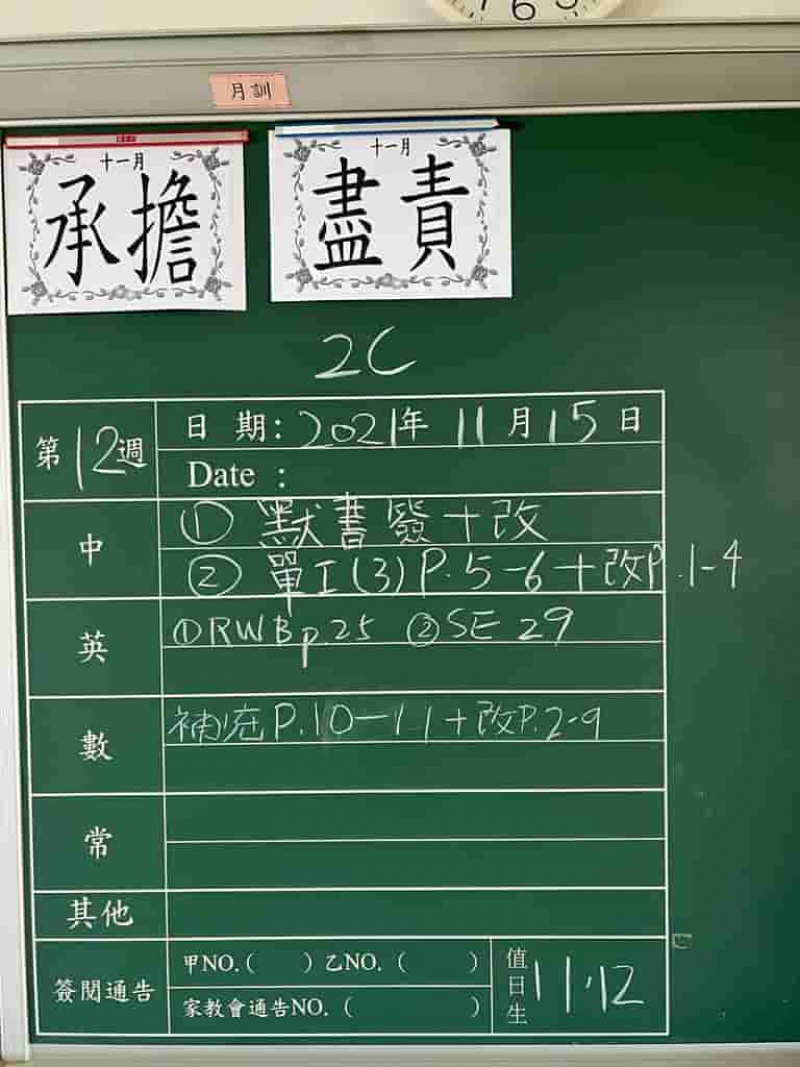 6
月訓
十一月
承擔
十一月
盡責
2C
第12週
日期：2021年11月15日
Date :
中
① 默書簽+改
② 單I(3) P.5-6+改P.1-4
英
①RWB p.25 ②SE 29
數
補充P.10-11+改P.2-9
常
其他
簽閱通告
甲NO.( ) 乙NO. ( )
家教會通告NO. ( )
值日生
11,12